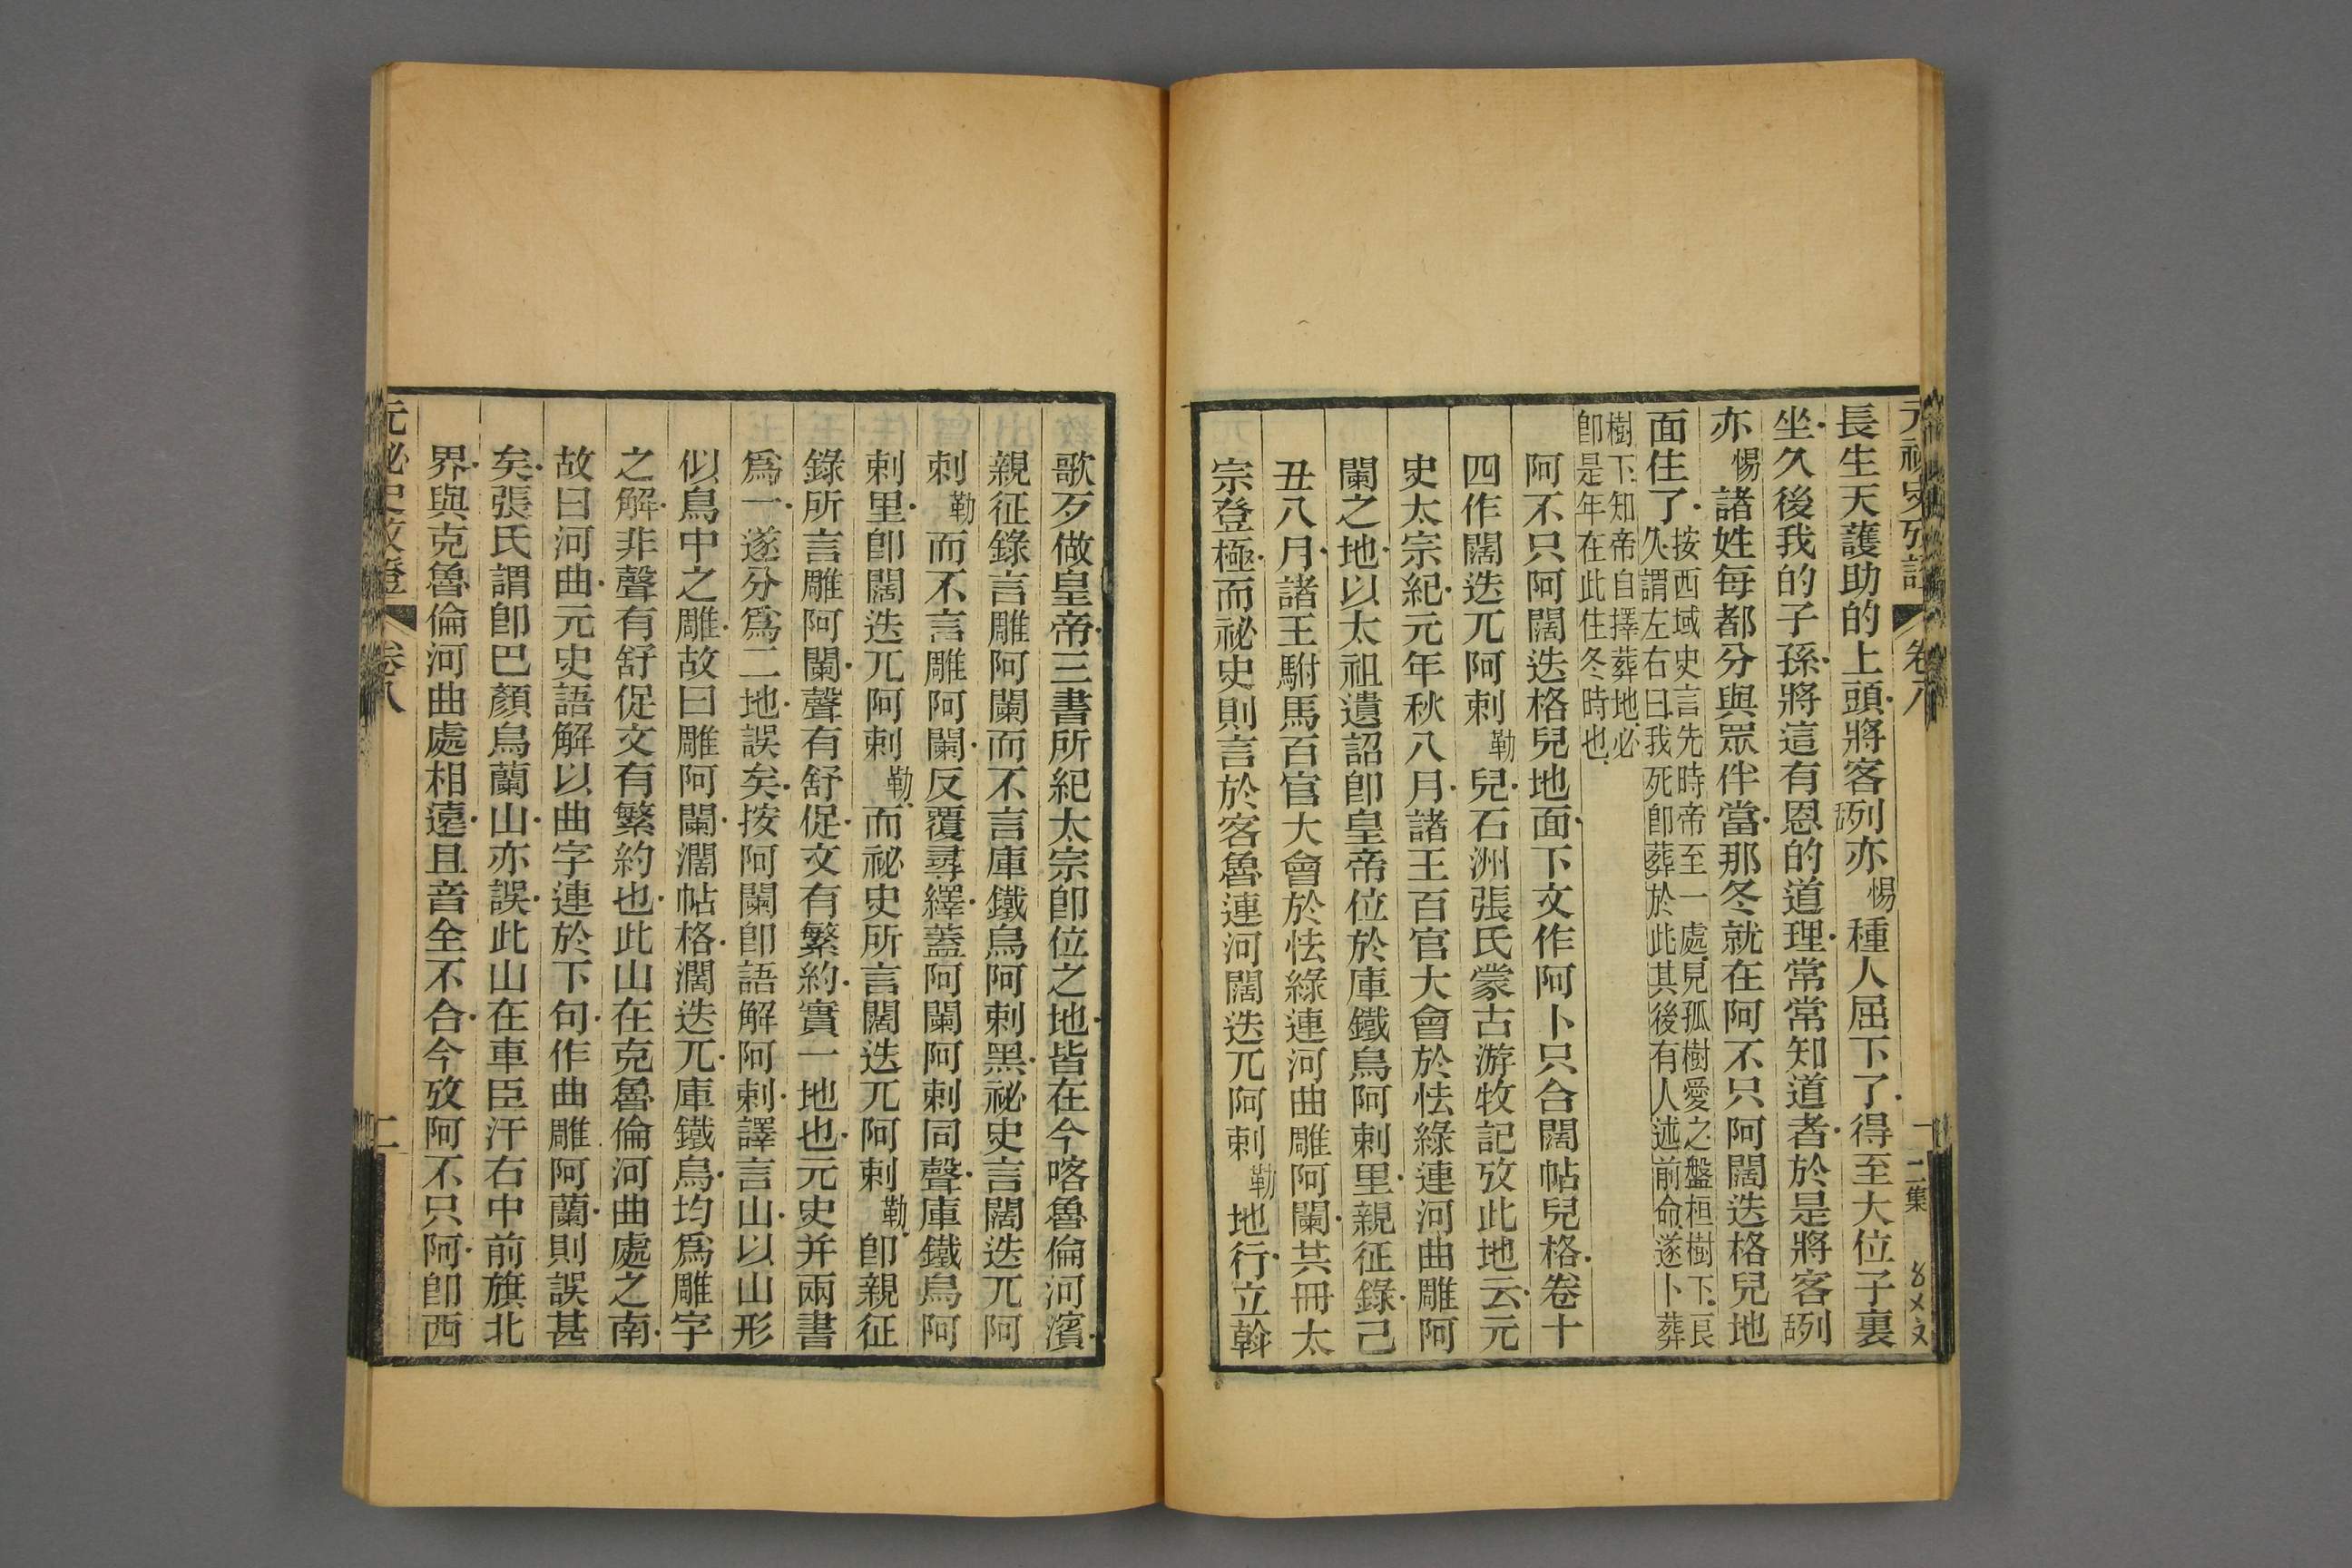 元祕史攷證 卷八 一 二集
長生天護助的上頭將客𦧲列亦惕種人屈下了得至大位子裏
坐久後我的子孫將這有恩的道理常常知道者於是將客𦧲列
亦惕諸姓每都分與眾伴當那冬就在阿不只阿闊迭格兒地
面住了按西域史言先時帝至一處見孤樹愛之盤桓樹下良
久謂左右曰我死卽葬於此其後有人述前命遂卜葬
樹下知帝自擇葬地必
卽是年在此住冬時也
阿不只阿闊迭格兒地面下文作阿卜只合闊帖兒格卷十
四作闊迭兀阿剌勒兒石洲張氏蒙古游牧記攷此地云元
史太宗紀元年秋八月諸王百官大會於怯綠連河曲雕阿
闌之地以太祖遺詔卽皇帝位於庫鐵烏阿剌里親征錄己
丑八月諸王駙馬百官大會於怯綠連河曲雕阿闌共冊太
宗登極而祕史則言於客魯連河闊迭兀阿剌勒地行立斡
歌歹做皇帝三書所紀太宗卽位之地皆在今喀魯倫河濱
親征錄言雕阿闌而不言庫鐵烏阿剌黑祕史言闊迭兀阿
剌勒而不言雕阿闌反覆尋繹蓋阿闌阿剌同聲庫鐵烏阿
剌里卽闊迭兀阿剌勒而祕史所言闊迭兀阿剌勒卽親征
錄所言雕阿闌聲有舒促文有繁約實一地也元史并兩書
爲一遂分爲二地誤矣按阿闌卽語解阿剌譯言山以山形
似鳥中之雕故曰雕阿闌濶帖格濶迭兀庫鐵烏均爲雕字
之解非聲有舒促文有繁約也此山在克魯倫河曲處之南
故曰河曲元史語解以曲字連於下句作曲雕阿蘭則誤甚
矣張氏謂卽巴顏烏蘭山亦誤此山在車臣汗右中前旗北
界與克魯倫河曲處相遠且音全不合今攷阿不只阿卽西
元祕史攷證 卷八 二